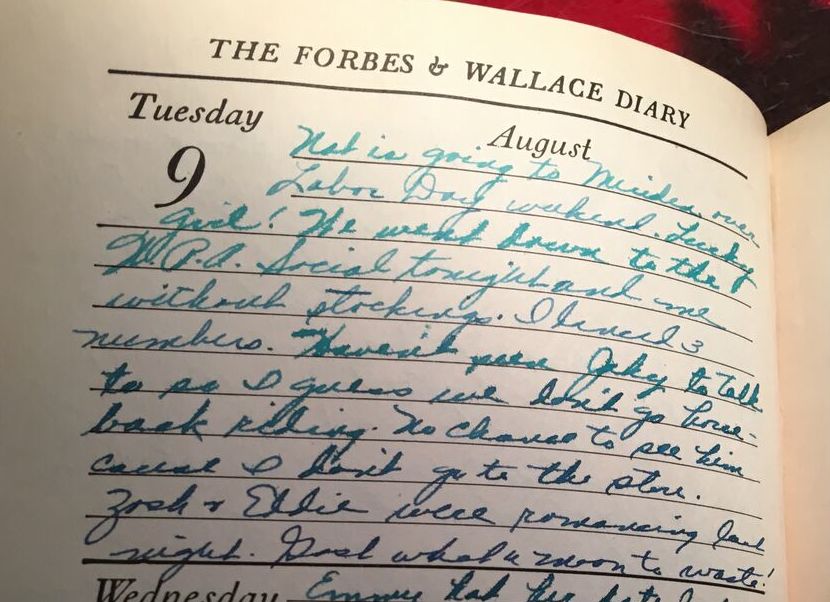 THE FORBES & WALLACE DIARY
Tuesday
August
9
Nat is going to Meriden over
Labor Day weekend. Lucky
girl! We went down to the
W.P.A. Social tonight and me
without stockings. I danced 3
numbers. Haven't seen Joky to talk
to so I guess we don't go horse-
back riding. No chance to see him
cause I don't go to the store.
Zosh & Eddie were romancing last
night. Gosh what a moon to waste!
Wednesday
Emmy had her date